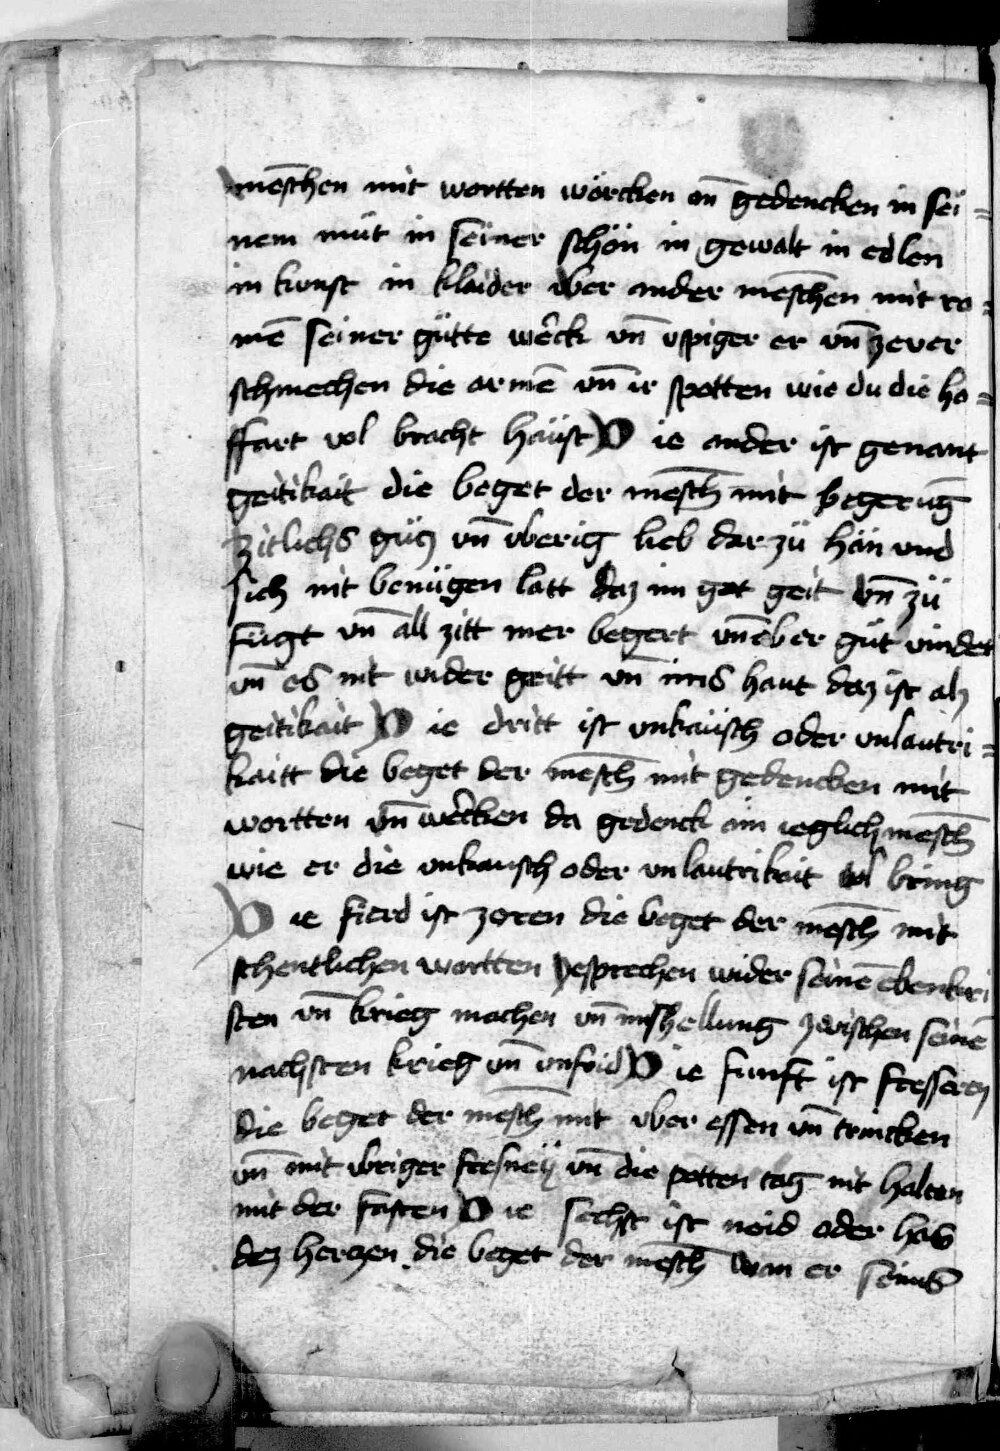 menschen mit wortten wörcken an̄ gedencken in sei=
nem müt in seiner schön in gewalt in edlen
in kunst in klaider vber ander mēschen mit ro=
mē seiner gütte wērck vn̄ vpiger er vn̄ zever
schmechen die armē vn̄ ir spotten wie du die ho=
ffart vol bracht häüst Die ander ist genant
geitikait die beget der mēsch mit begerūg
zitlichs gütz vn̄ vberig lieb dar zü hän vnd
sich nit benügen latt daz im got geit vn̄ zü
fügt vn̄ all zitt mer begert vn̄ eber güt vindet
vn̄ es nit wider geitt vn̄ ims haut daz ist alz
geitikait Die dritt ist vnkäüsch oder vnlautri=
kaitt die beget der mēsch mit gedencken mit
wortten vn̄ wērcken da gedenck ain ieglich mēsch
wie er die vnkausch oder vnlautrikait vol bring
Die fierd ist zoren die beget der mēsch mit
schentlichen wortten zesprechen wider seinē ebenkri
sten vn̄ krieg machen vn̄ mishellung zwischen seinē
nachsten krieg vn̄ vnfrid Die funft ist fresserey
die beget der mēsch mit vber essen vn̄ trincken
vn̄ mit vbriger fresneÿ vn̄ die potten tag nit halten
mit der fasten Die sechst ist neid oder has
dez herczen die beget der mēsch wan er seins